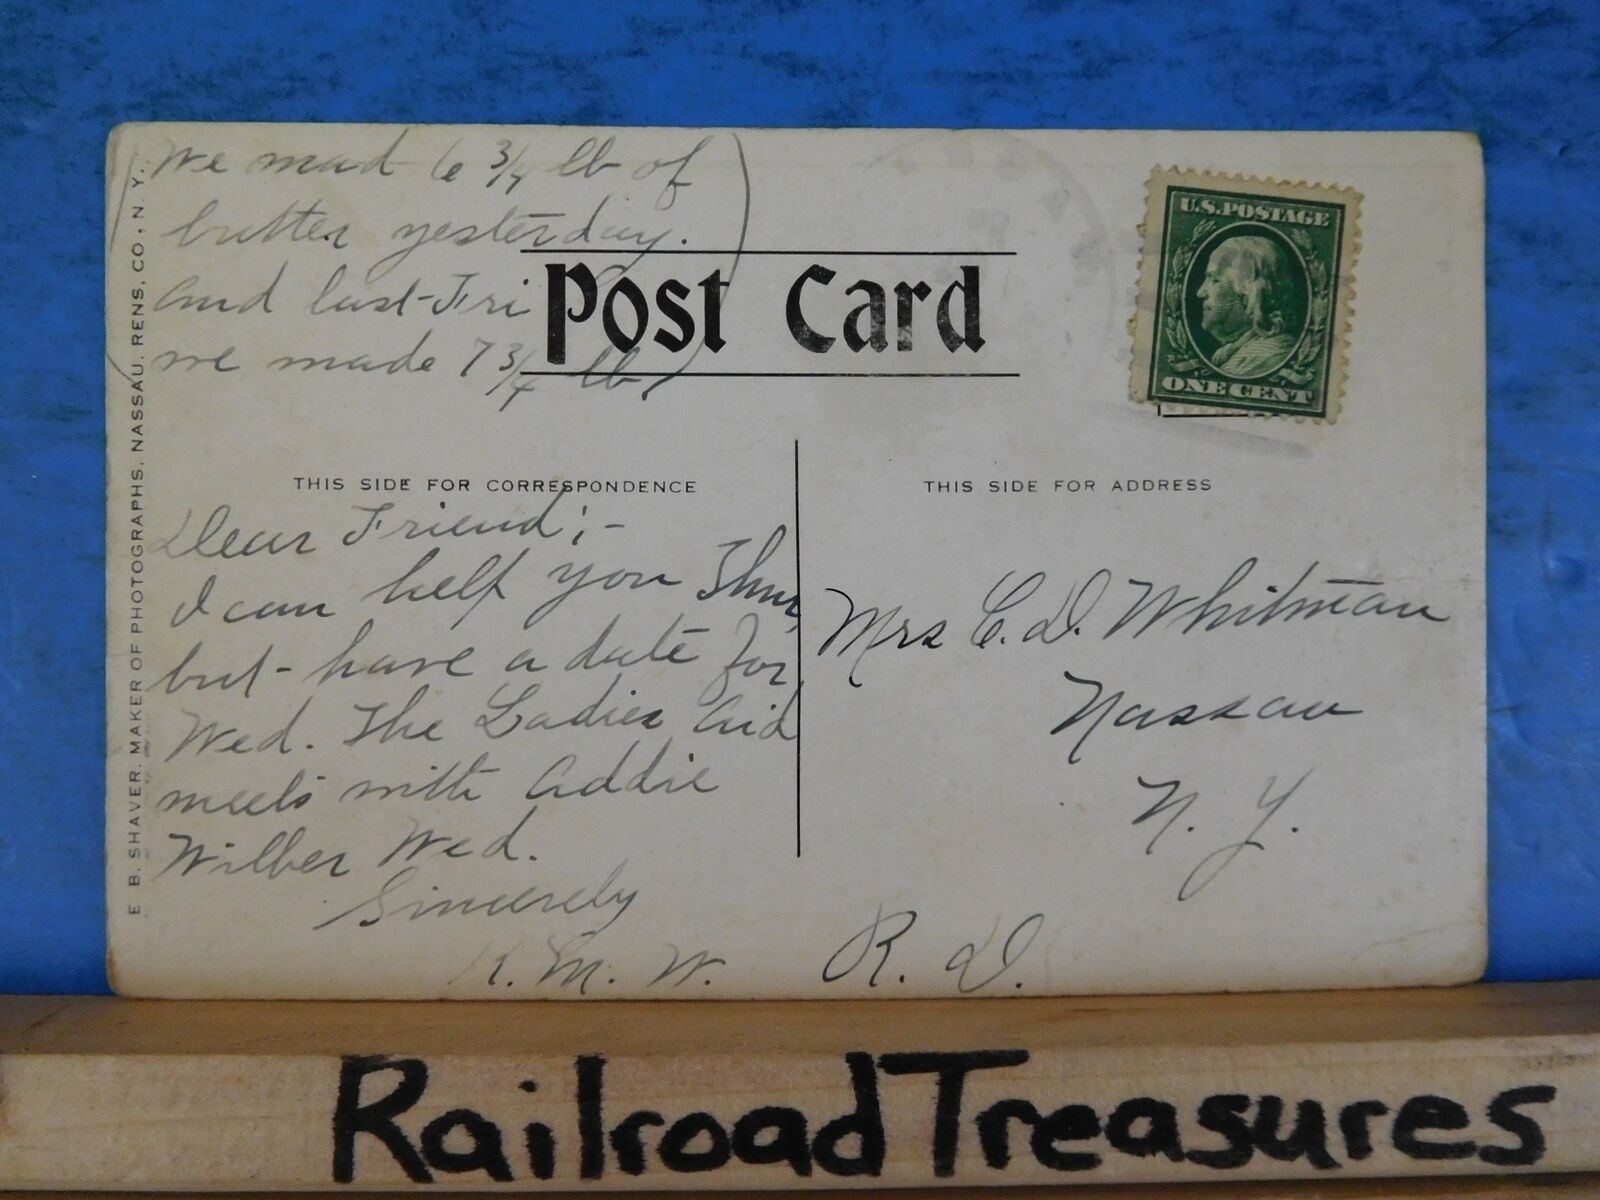 We mad 6 3/4 lb of
butter yesterday.
and last Fri
we made 7 3/4 lb
Post Card
U.S.POSTAGE
ONE CENT
E. B. SHAVER, MAKER OF PHOTOGRAPHS, NASSAU, RENS. CO., N. Y.
THIS SIDE FOR CORRESPONDENCE
THIS SIDE FOR ADDRESS
Dear Friend;-
I can help you Thur,
but- have a date for
Wed. The Ladies Aid
meets with Addie
Wilber Wed.
Sincerely
R. M. W.
Mrs C. D. Whitman
Nassau
N. Y.
R. D.
Railroad Treasures